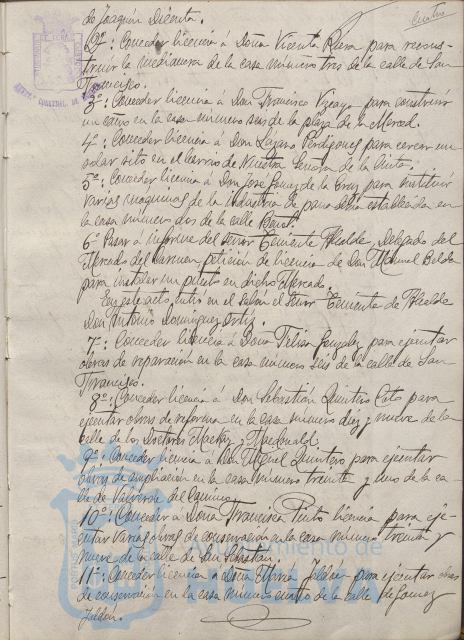 cuatro
de Joaquín Dicenta.
2º: Conceder licencia á Doña Vicenta Riera para recons-
truir la medianera de la casa número tres de la calle de San
Francisco.
3º: Conceder licencia á Don Francisco Vizcaya para construir
un caño en la casa número seis de la plaza de la Merced.
4º: Conceder licencia á Don Lázaro Perdigones para cercar un
solar sito en el barrio de Nuestra Señora de la Cinta.
5º: Conceder licencia á Don José Gómez de la Cruz para instituir
varias maquinas de la industria de panadería establecida en
la casa número dos de la calle
6º Pasar á informe del señor Teniente Alcalde, Delegado del
Mercado del Carmen, petición de licencia de Don Manuel Belda
para instalar un puesto en dicho Mercado.
En este acto, entró en el salón el señor Teniente de Alcalde
Don Antonio Domínguez Ortiz.
7º: Conceder licencia á Don Felix González para ejecutar
obras de reparación en la casa número seis de la calle de San
Francisco.
8º: Conceder licencia á Don Sebastián Quintero Coto para
ejecutar obras de reforma en la casa número diez y nueve de la
calle de los Doctores Mackay y Macdonald.
9º: Conceder licencia á Don Miguel Quintero para ejecutar
obras de ampliación en la casa número treinta y uno de la ca-
lle de Valverde del Camino.
10º: Conceder á Doña Francisca Pinto licencia para eje-
cutar varias obras de conservación en la casa número treinta y
nueve de la calle de San Sebastián.
11º: Conceder licencia á Doña María Jaldón para ejecutar obras
de conservación en la casa número cuatro de la calle de Gómez
Jaldón.
Ayuntamiento de
HUELVA